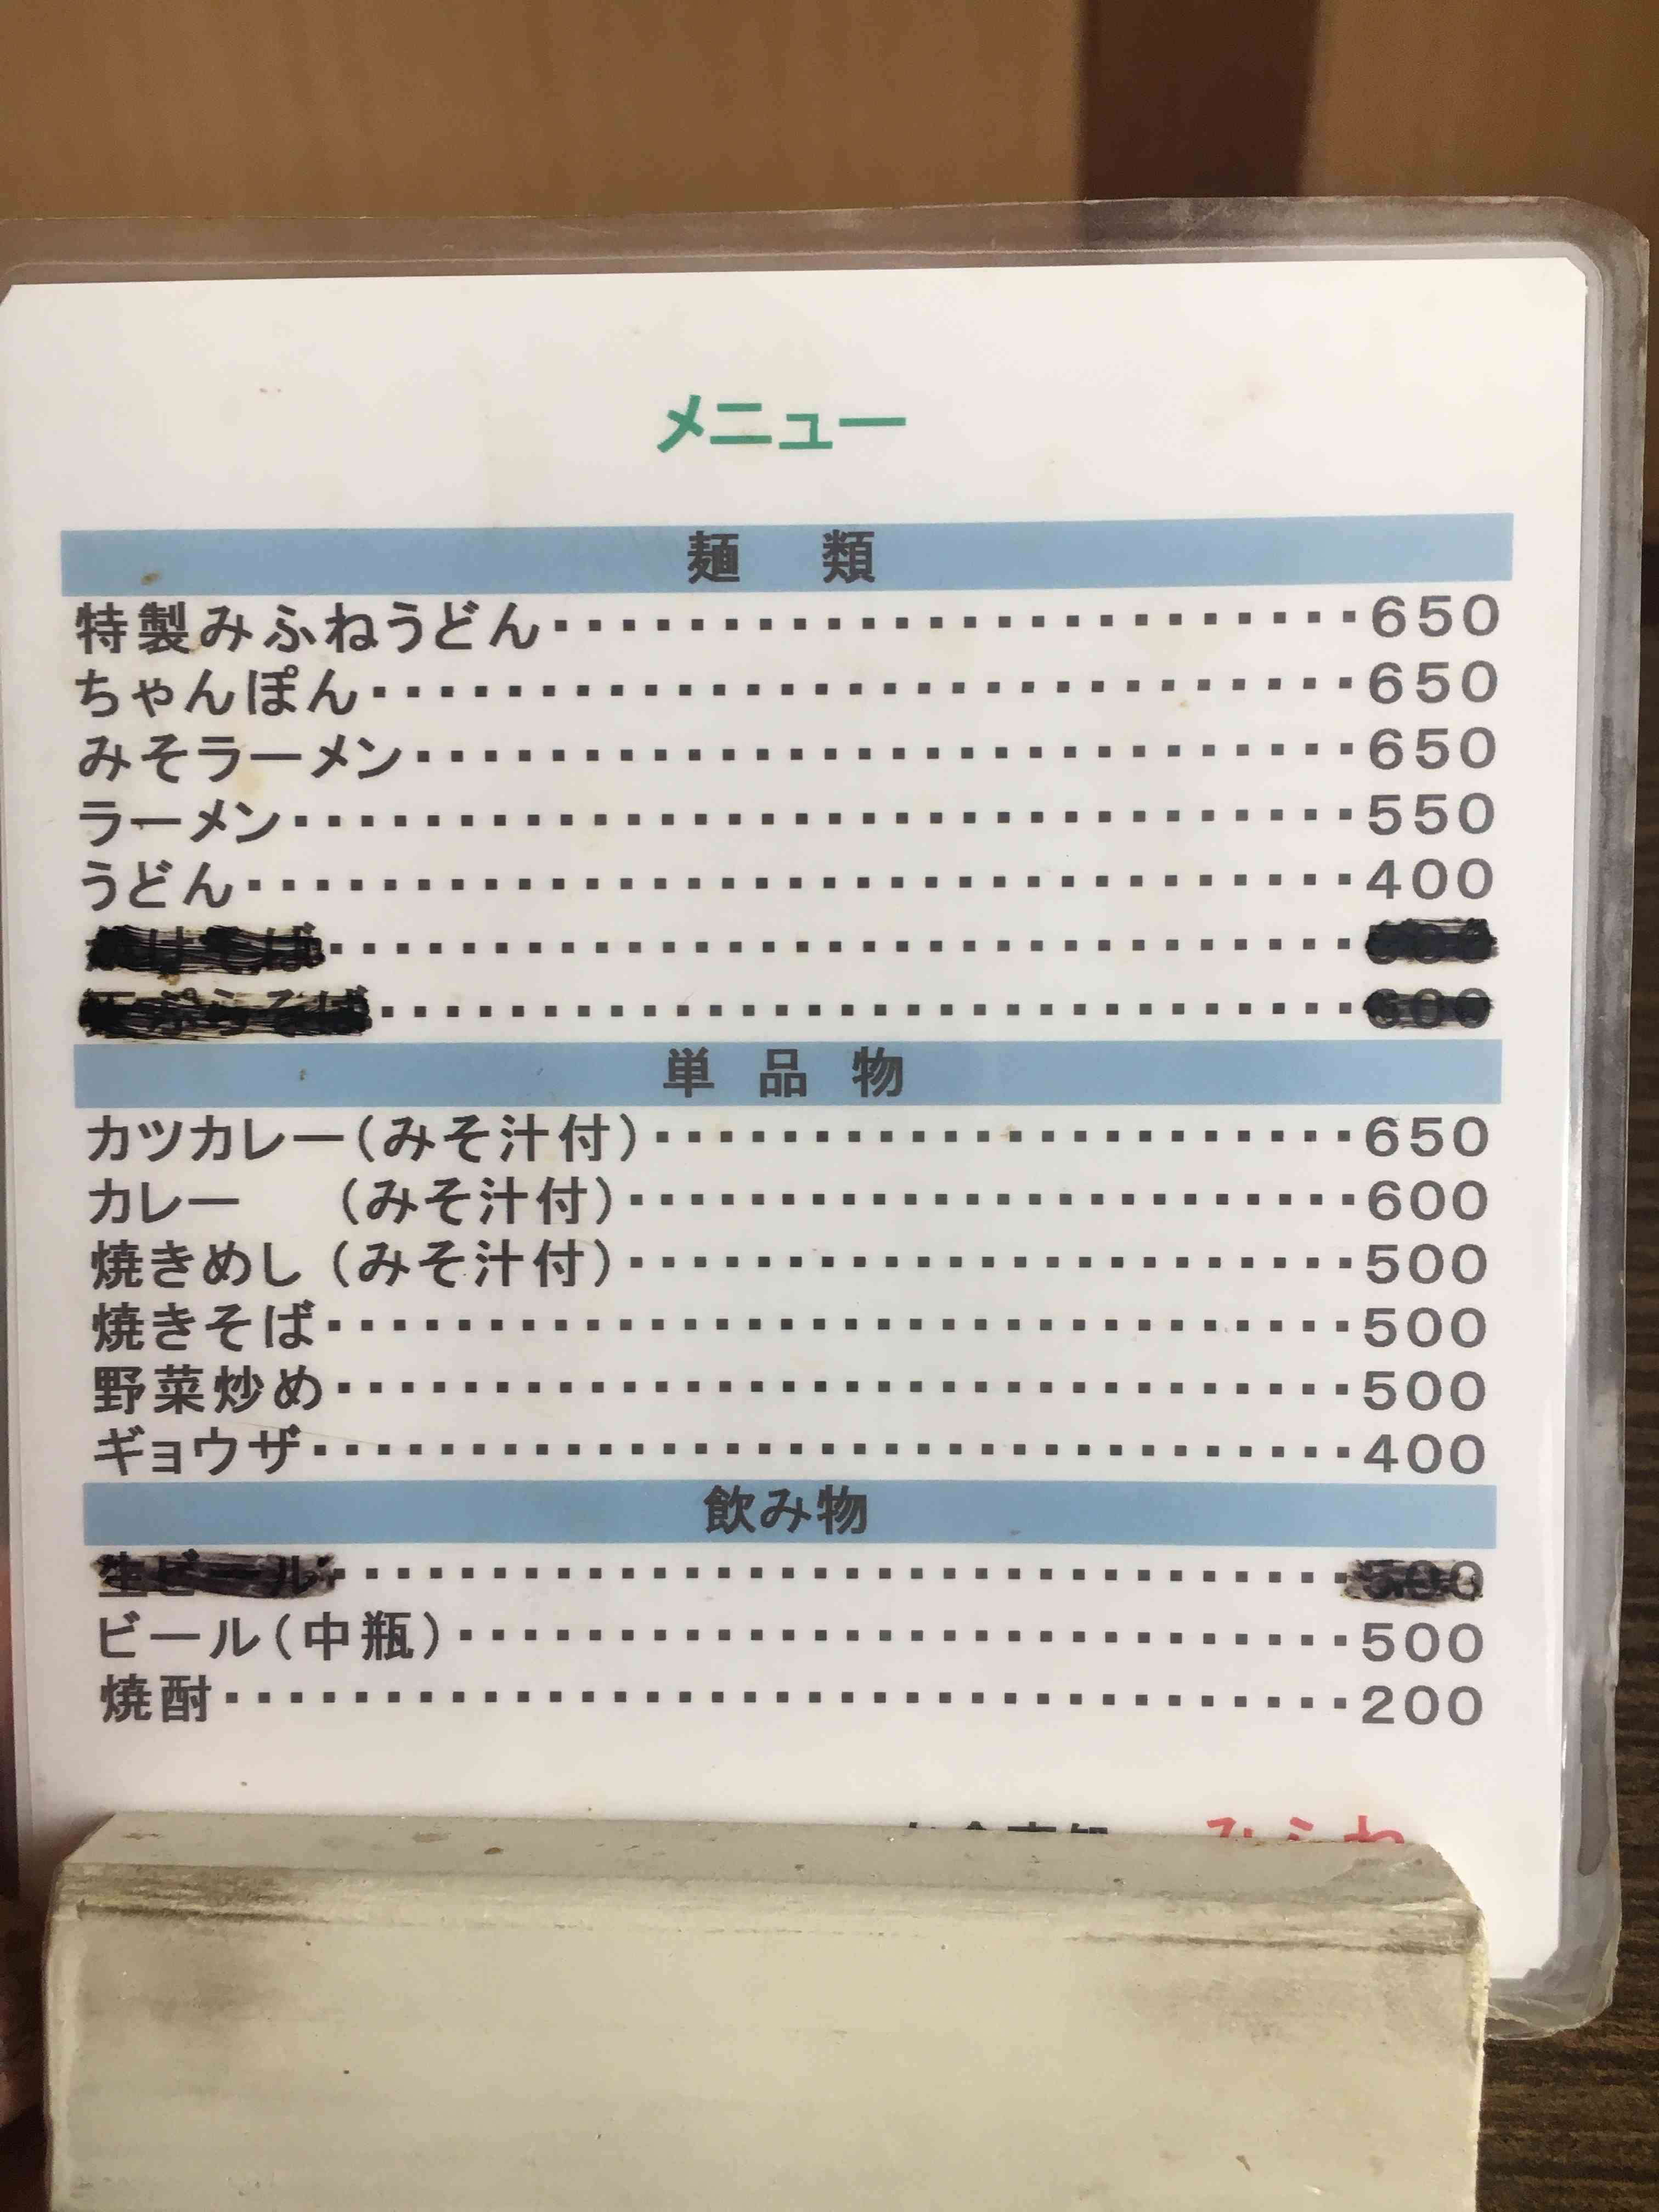 メニュー
麺 類
特製みふねうどん‥‥‥‥‥‥‥‥‥‥‥‥650
ちゃんぽん‥‥‥‥‥‥‥‥‥‥‥‥‥‥‥650
みそラーメン‥‥‥‥‥‥‥‥‥‥‥‥‥‥650
ラーメン‥‥‥‥‥‥‥‥‥‥‥‥‥‥‥‥550
うどん‥‥‥‥‥‥‥‥‥‥‥‥‥‥‥‥‥400
単 品 物
カツカレー(みそ汁付)‥‥‥‥‥‥‥‥‥‥‥650
カレー (みそ汁付)‥‥‥‥‥‥‥‥‥‥‥600
焼きめし (みそ汁付)‥‥‥‥‥‥‥‥‥‥‥500
焼きそば‥‥‥‥‥‥‥‥‥‥‥‥‥‥‥‥500
野菜炒め‥‥‥‥‥‥‥‥‥‥‥‥‥‥‥‥500
ギョウザ‥‥‥‥‥‥‥‥‥‥‥‥‥‥‥‥400
飲み物
生ビール‥‥‥‥‥‥‥‥‥‥‥‥‥‥‥‥500
ビール(中瓶)‥‥‥‥‥‥‥‥‥‥‥‥‥‥500
焼酎‥‥‥‥‥‥‥‥‥‥‥‥‥‥‥‥‥‥200
みふね